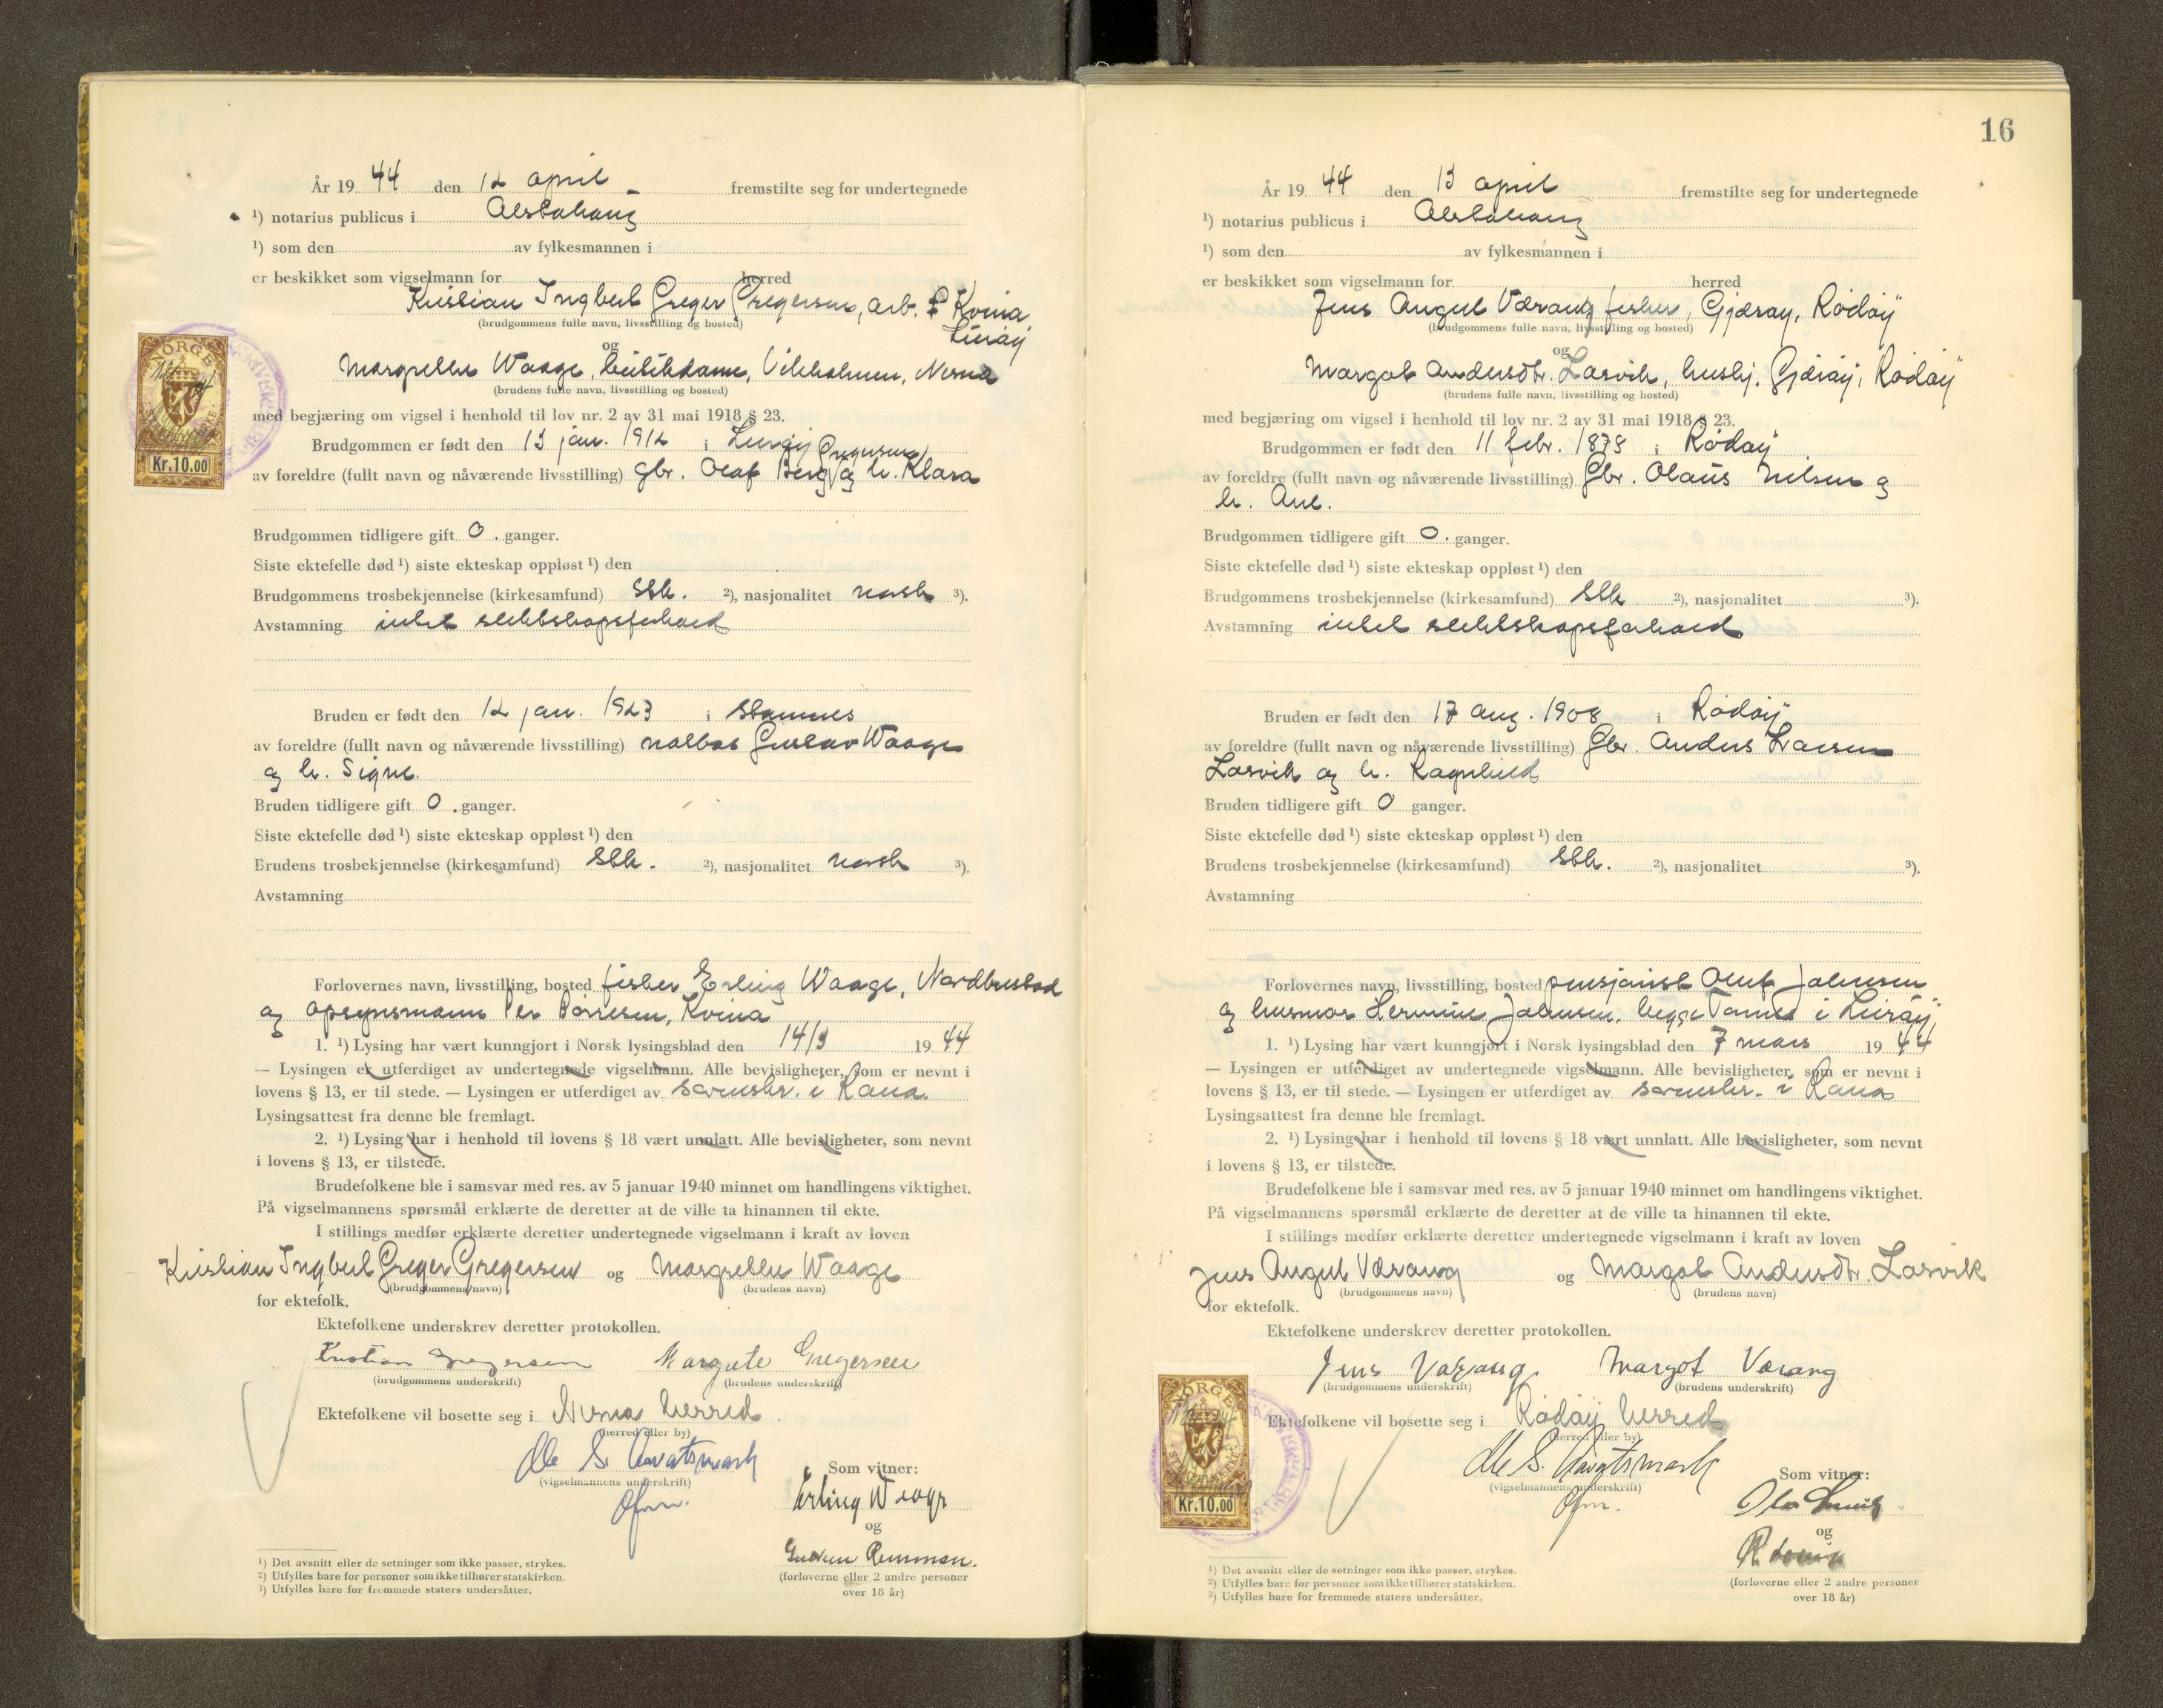 År 19 44 den 12 april fremstilte seg for undertegnede
¹) notarius publicus i Alstahaug
¹) som den av fylkesmannen i
er beskikket som vigselmann for herred
Kristian Ingbert Greger Gregersen, arb. Kvina
Lurøy
(brudgommens fulle navn, livsstilling og bosted)
og
Margrethe Waage, Vikholmen, Nesna
(brudens fulle navn, livsstilling og bosted)
med begjæring om vigsel i henhold til lov nr. 2 av 31 mai 1918 § 23.
NORGE
Kr.10.00
Brudgommen er født den 13 jan. 1912 i Lurøy
Gregersen
av foreldre (fullt navn og nåværende livsstilling) gbr. Olaf Berg og h. Klara
Brudgommen tidligere gift 0. ganger.
Siste ektefelle død ¹) siste ekteskap oppløst ¹) den
Brudgommens trosbekjennelse (kirkesamfund) Stk. ²), nasjonalitet norsk ³).
Avstamning intet slektskapsforhold
Bruden er født den 12 jan. 1923 i Stamnes
av foreldre (fullt navn og nåværende livsstilling) notbas Gustav Waage
og h. Signe.
Bruden tidligere gift 0. ganger.
Siste ektefelle død ¹) siste ekteskap oppløst ¹) den
Brudens trosbekjennelse (kirkesamfund) Stk. ²), nasjonalitet norsk ³).
Avstamning
Forlovernes navn, livsstilling, bosted fisker Erling Waage, Nordbustad
og opsynsmann Per Børresen, Kvina
1. ¹) Lysing har vært kunngjort i Norsk lysingsblad den 14/3 19 44
— Lysingen er utferdiget av undertegnede vigselmann. Alle bevisligheter, som er nevnt i
lovens § 13, er til stede. — Lysingen er utferdiget av sorenskr. i Rana.
Lysingsattest fra denne ble fremlagt.
2. ¹) Lysing har i henhold til lovens § 18 vært unnlatt. Alle bevisligheter, som nevnt
i lovens § 13, er tilstede.
Brudefolkene ble i samsvar med res. av 5 januar 1940 minnet om handlingens viktighet.
På vigselmannens spørsmål erklærte de deretter at de ville ta hinannen til ekte.
I stillings medfør erklærte deretter undertegnede vigselmann i kraft av loven
Kristian Ingbert Greger Gregersen og Margrethe Waage
(brudgommens navn) (brudens navn)
for ektefolk.
Ektefolkene underskrev deretter protokollen.
Kristian Gregersen Margrete Gregersen
(brudgommens underskrift) (brudens underskrift)
Ektefolkene vil bosette seg i Nesna herred.
(herred eller by)
S. Kvatsmark
(vigselmannens underskrift)
Som vitner:
Erling Waage
og
Gudrun
(forloverne eller 2 andre personer
over 18 år)
¹) Det avsnitt eller de setninger som ikke passer, strykes.
²) Utfylles bare for personer som ikke tilhører statskirken.
³) Utfylles bare for fremmede staters undersåtter.
16
År 19 44 den 13 april fremstilte seg for undertegnede
¹) notarius publicus i Alstahaug
¹) som den av fylkesmannen i
er beskikket som vigselmann for herred
Jens Angel Værang fisker, Gjærøy, Rødøy
(brudgommens fulle navn, livsstilling og bosted)
og
Margot Andersdtr. Lasvik, hushj. Gjærøy, Rødøy
(brudens fulle navn, livsstilling og bosted)
med begjæring om vigsel i henhold til lov nr. 2 av 31 mai 1918 § 23.
Brudgommen er født den 11 febr. 1878 i Rødøy
av foreldre (fullt navn og nåværende livsstilling) Gbr. Olaus Nilsen og
h. Ane.
Brudgommen tidligere gift 0. ganger.
Siste ektefelle død ¹) siste ekteskap oppløst ¹) den
Brudgommens trosbekjennelse (kirkesamfund) Stk ²), nasjonalitet ³).
Avstamning intet slektskapsforhold
Bruden er født den 17 aug. 1908 i Rødøy
av foreldre (fullt navn og nåværende livsstilling) Gbr. Anders Larsen
Lasvik og h. Ragnhild
Bruden tidligere gift 0 ganger.
Siste ektefelle død ¹) siste ekteskap oppløst ¹) den
Brudens trosbekjennelse (kirkesamfund) Stk. ²), nasjonalitet ³).
Avstamning
Forlovernes navn, livsstilling, bosted pensjonist Oluf Johnsen
og husmor Hermine Johnsen, begge Tonnes i Lurøy
1. ¹) Lysing har vært kunngjort i Norsk lysingsblad den 7 mars 19 44
— Lysingen er utferdiget av undertegnede vigselmann. Alle bevisligheter, som er nevnt i
lovens § 13, er til stede. — Lysingen er utferdiget av sorenskr. i Rana
Lysingsattest fra denne ble fremlagt.
2. ¹) Lysing har i henhold til lovens § 18 vært unnlatt. Alle bevisligheter, som nevnt
i lovens § 13, er tilstede.
Brudefolkene ble i samsvar med res. av 5 januar 1940 minnet om handlingens viktighet.
På vigselmannens spørsmål erklærte de deretter at de ville ta hinannen til ekte.
I stillings medfør erklærte deretter undertegnede vigselmann i kraft av loven
Jens Angel Værang og Margot Andersdtr. Lasvik
(brudgommens navn) (brudens navn)
for ektefolk.
Ektefolkene underskrev deretter protokollen.
Jens Værang. Margot Værang
(brudgommens underskrift) (brudens underskrift)
NORGE
Kr.10.00
Ektefolkene vil bosette seg i Rødøy herred
(herred eller by)
S. Kvatsmark
(vigselmannens underskrift)
Som vitner:
og
(forloverne eller 2 andre personer
over 18 år)
¹) Det avsnitt eller de setninger som ikke passer, strykes.
²) Utfylles bare for personer som ikke tilhører statskirken.
³) Utfylles bare for fremmede staters undersåtter.